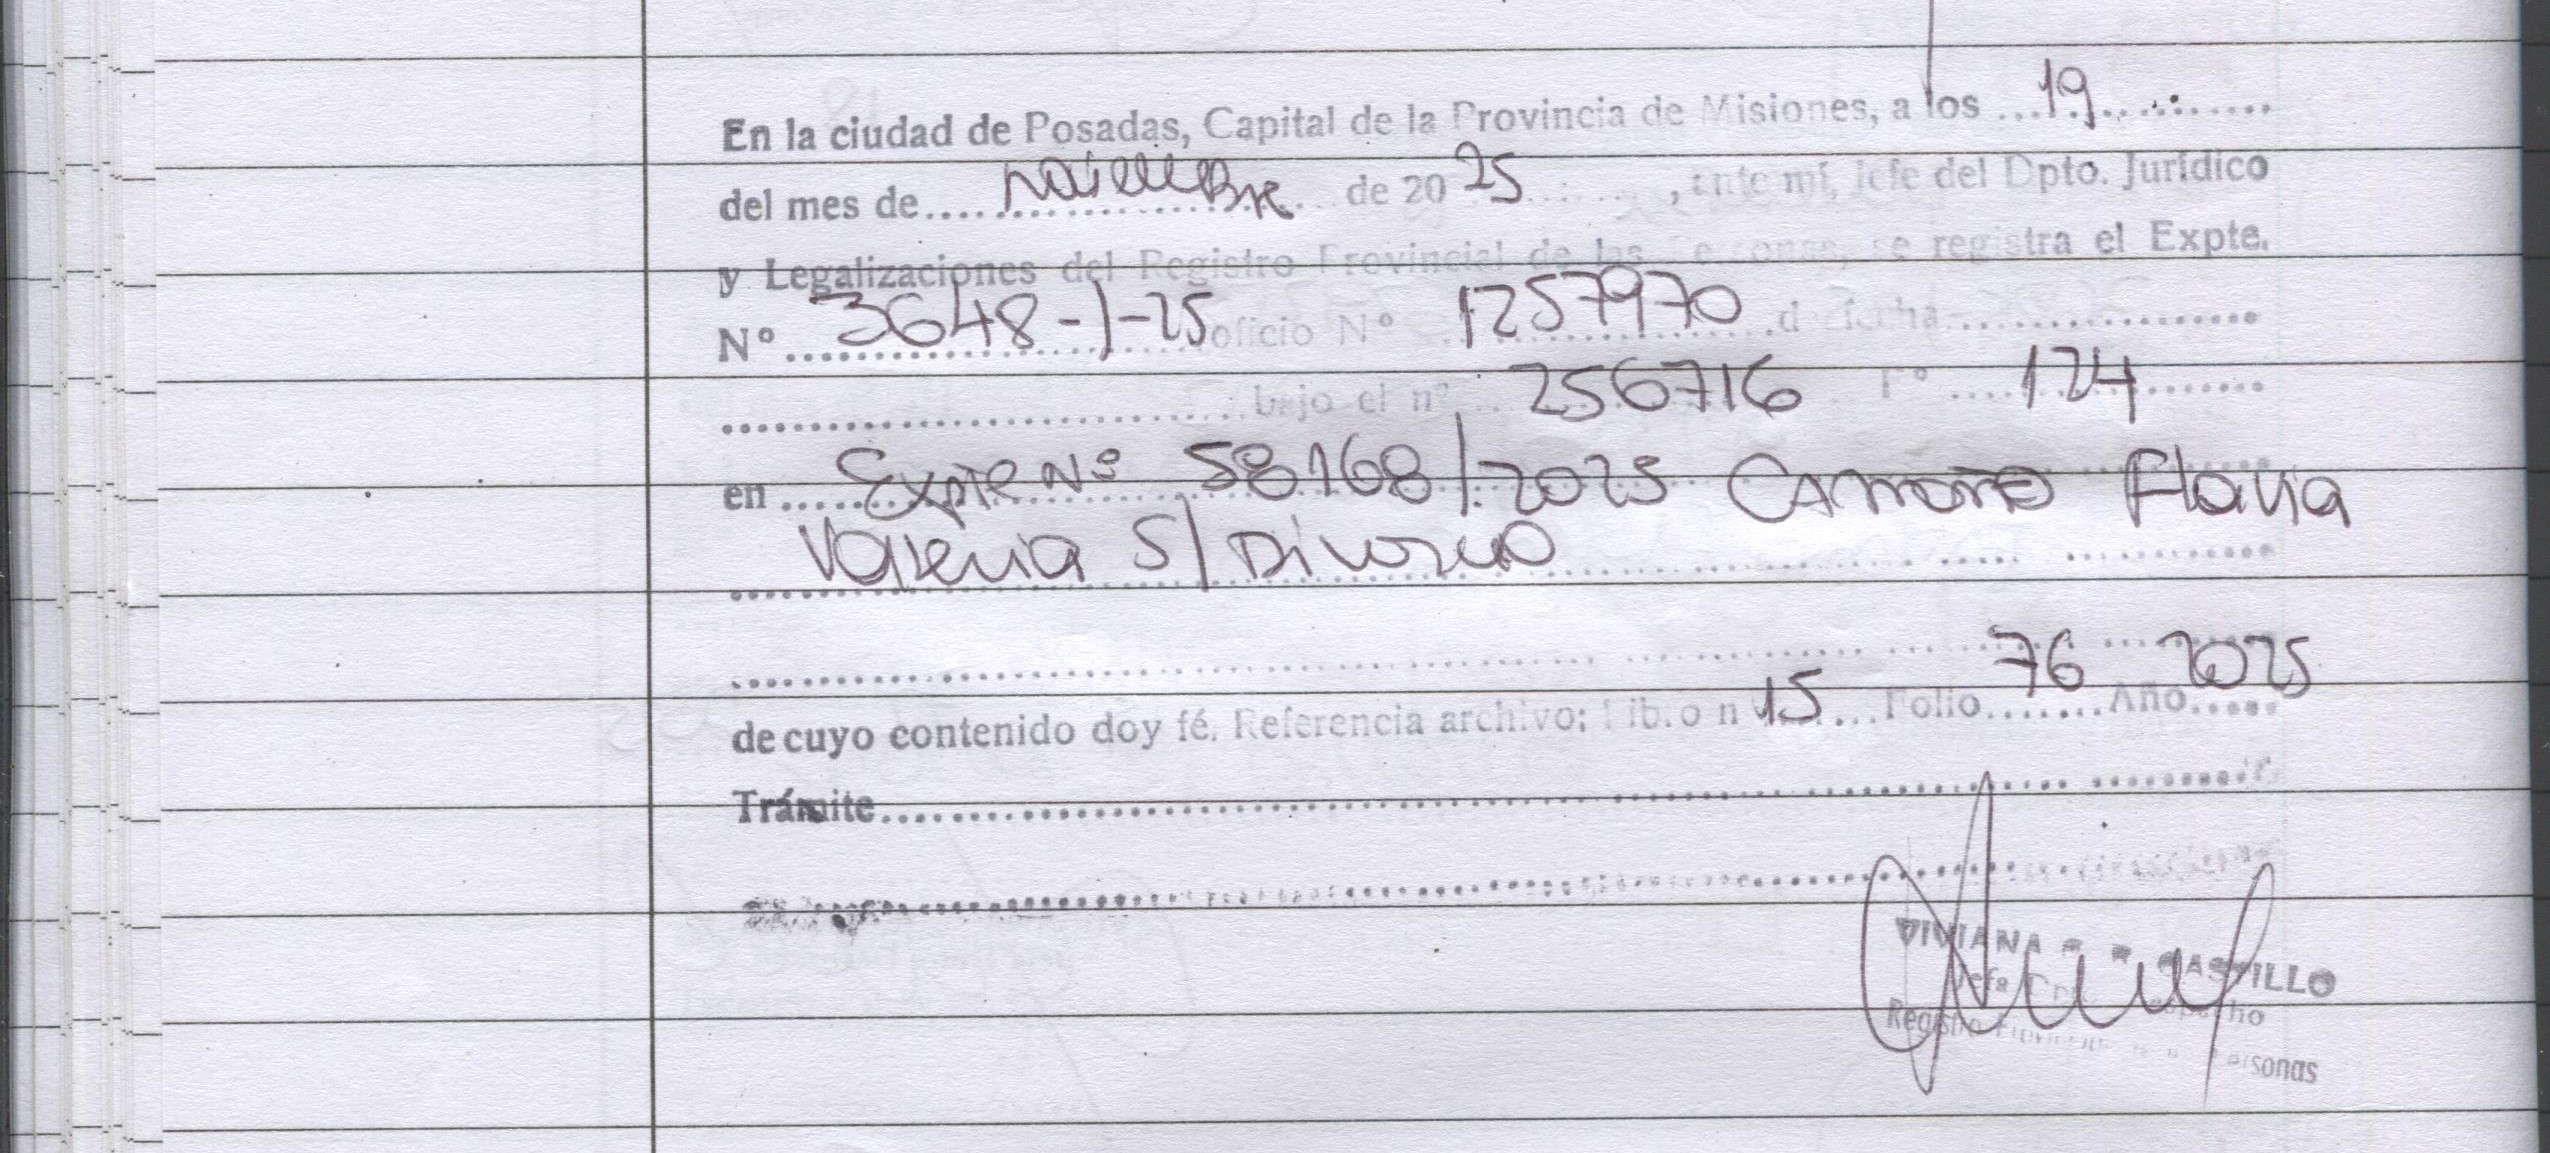 En la ciudad de Posadas, Capital de la Provincia de Misiones, a los ...19...........
del mes de.... noviembre ... de 20 25 ......, ante mí, Jefe del Dpto. Jurídico
y Legalizaciones del Registro Provincial de las Personas, se registra el Expte.
Nº ... 3648-1-25 oficio Nº 1257970 de fecha..................
.............................. bajo el nº 256716 Fº .... 124 ........
en ..... Expte Nº 58168/2025 Flavia
Valeria S/ Divorcio ....................
..........................................................
de cuyo contenido doy fé. Referencia archivo: Libro n 15 ... Folio 76 Año 2025
Trámite..........................................................
..........................................................
VIVIANA CASTILLO
Jefa
Registro Personas